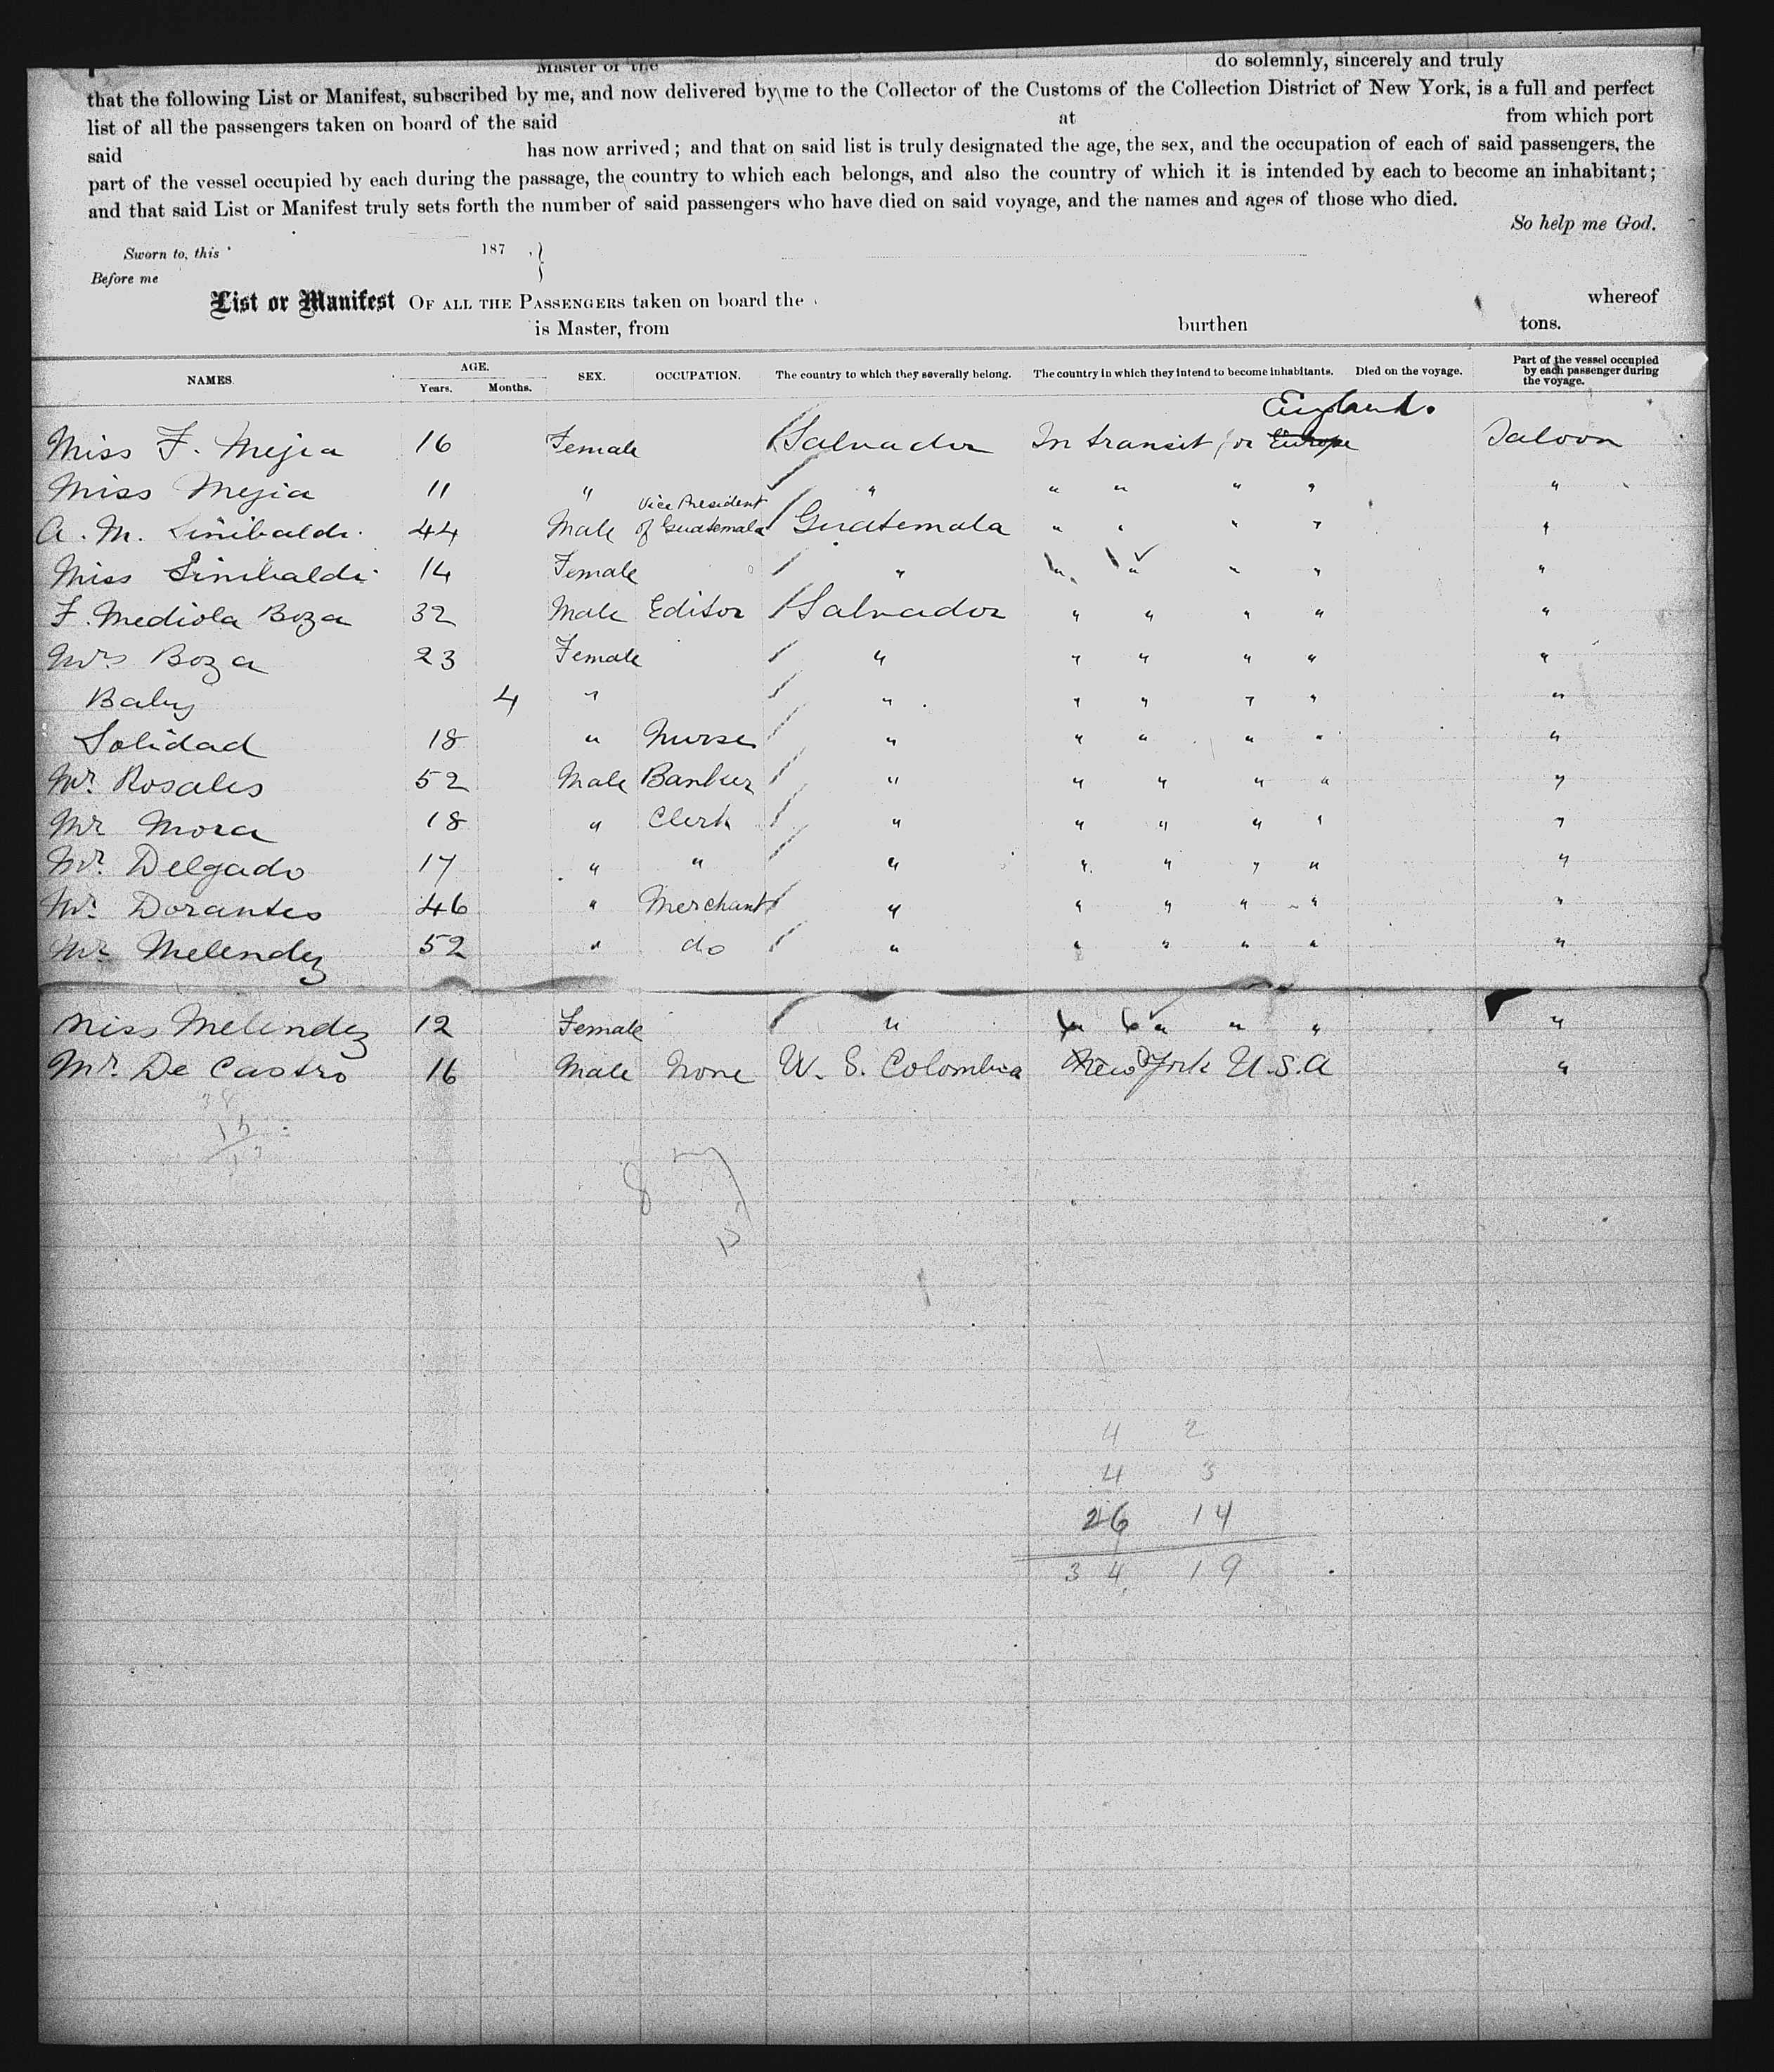 Master of the do solemnly, sincerely and truly
that the following List or Manifest, subscribed by me, and now delivered by me to the Collector of the Customs of the Collection District of New York, is a full and perfect
list of all the passengers taken on board of the said at from which port
said has now arrived; and that on said list is truly designated the age, the sex, and the occupation of each of said passengers, the
part of the vessel occupied by each during the passage, the country to which each belongs, and also the country of which it is intended by each to become an inhabitant;
and that said List or Manifest truly sets forth the number of said passengers who have died on said voyage, and the names and ages of those who died.
So help me God.
Sworn to, this 187
Before me
List or Manifest OF ALL THE PASSENGERS taken on board the whereof
is Master, from burthen tons.
NAMES. AGE. Years. Months. SEX. OCCUPATION. The country to which they severally belong. The country in which they intend to become inhabitants. Died on the voyage. Part of the vessel occupied by each passenger during the voyage.
England.
Miss F. Mejia 16 Female Salvador In transit for Europe Saloon
Miss Mejia 11 " " " " " " "
Vice President
A. M. Sinibaldi 44 Male of Guatemala Guatemala " " " " "
Miss Sinibaldi 14 Female " " " " " "
F. Mediola Boza 32 Male Editor Salvador " " " " "
Mrs Boza 23 Female " " " " " "
Baby 4 " " " " " " "
Solidad 18 " Nurse " " " " " "
Mr. Rosales 52 Male Banker " " " " " "
Mr Mora 18 " Clerk " " " " " "
Mr. Delgado 17 " " " " " " " "
Mr. Dorantes 46 " Merchant " " " " " "
Mr. Melendez 52 " do " " " " " "
Miss Melendez 12 Female " " " " " "
Mr. De Castro 16 Male None U. S. Colombia New York U.S.A "
4 2
4 3
26 14
34 19